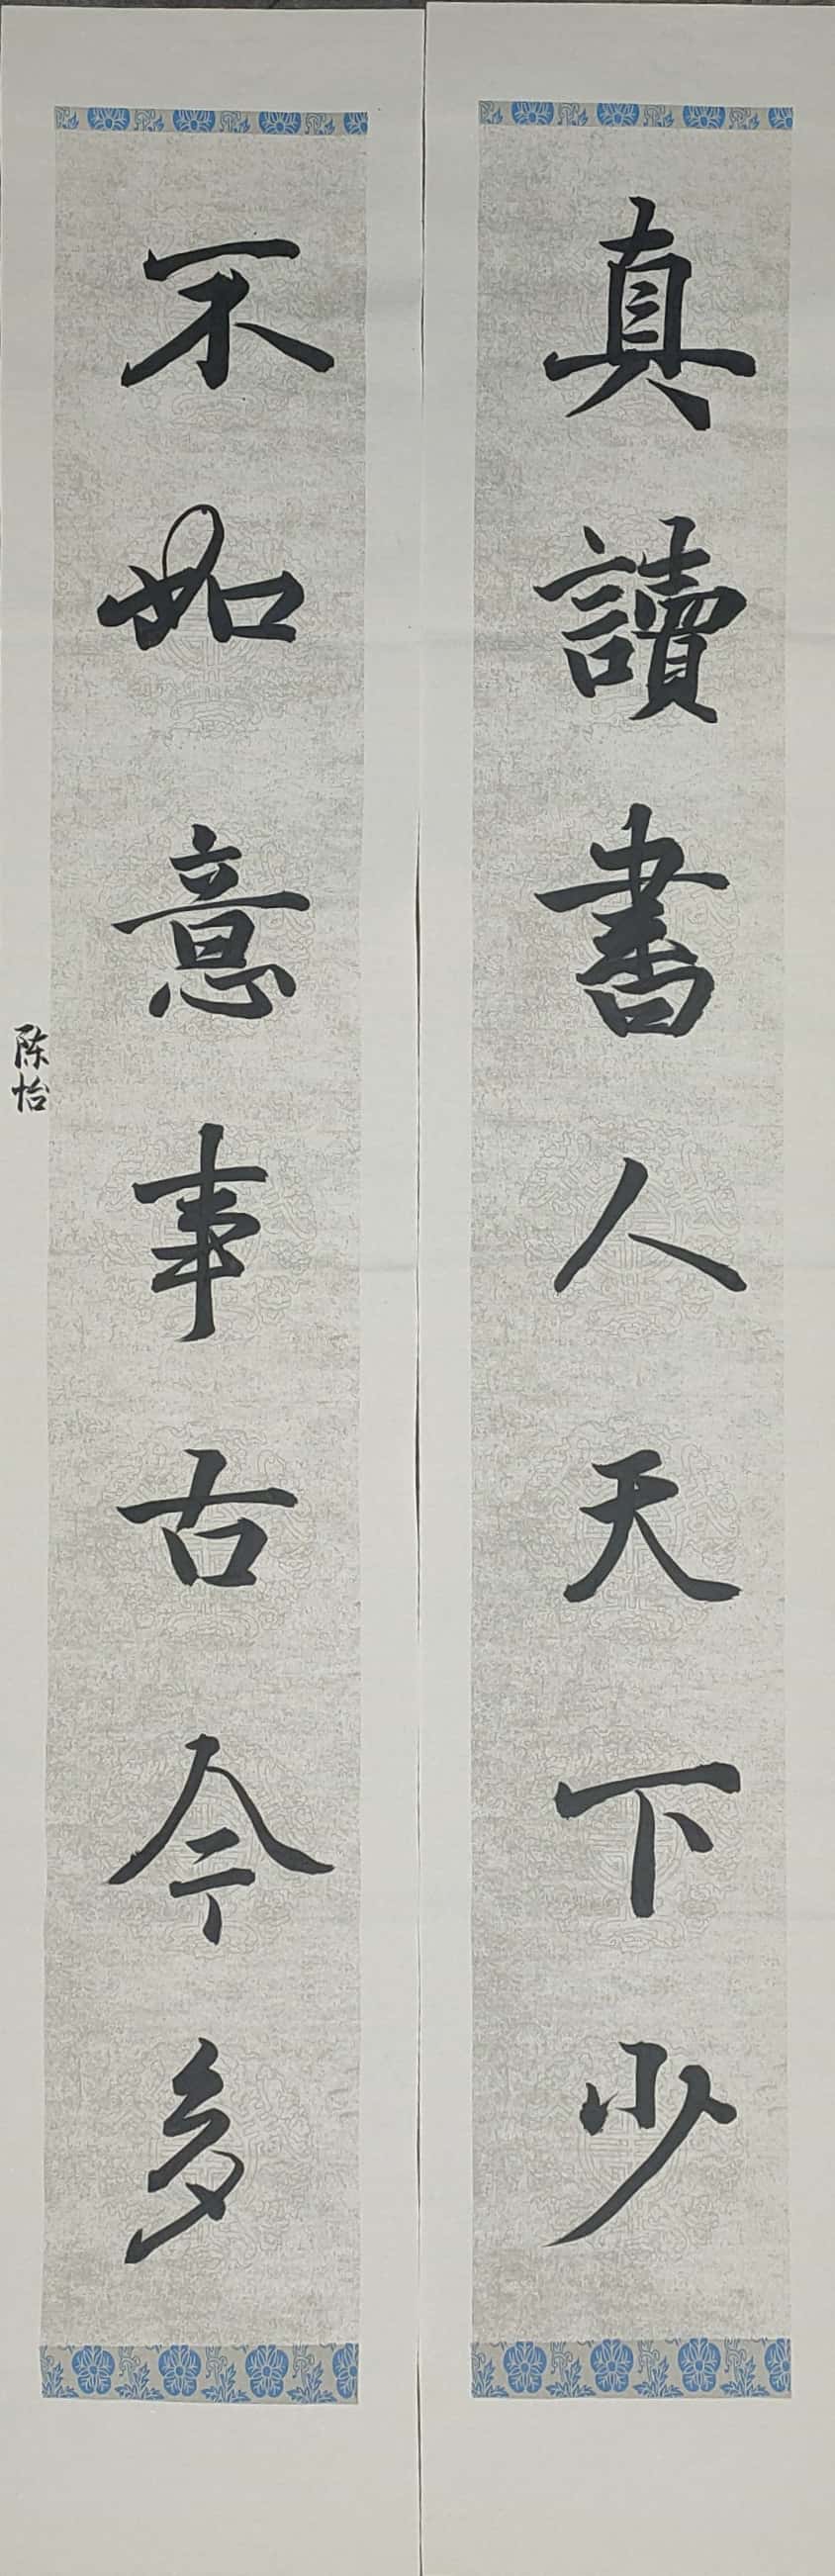 真讀書人天下少
不如意事古今多
陈怡